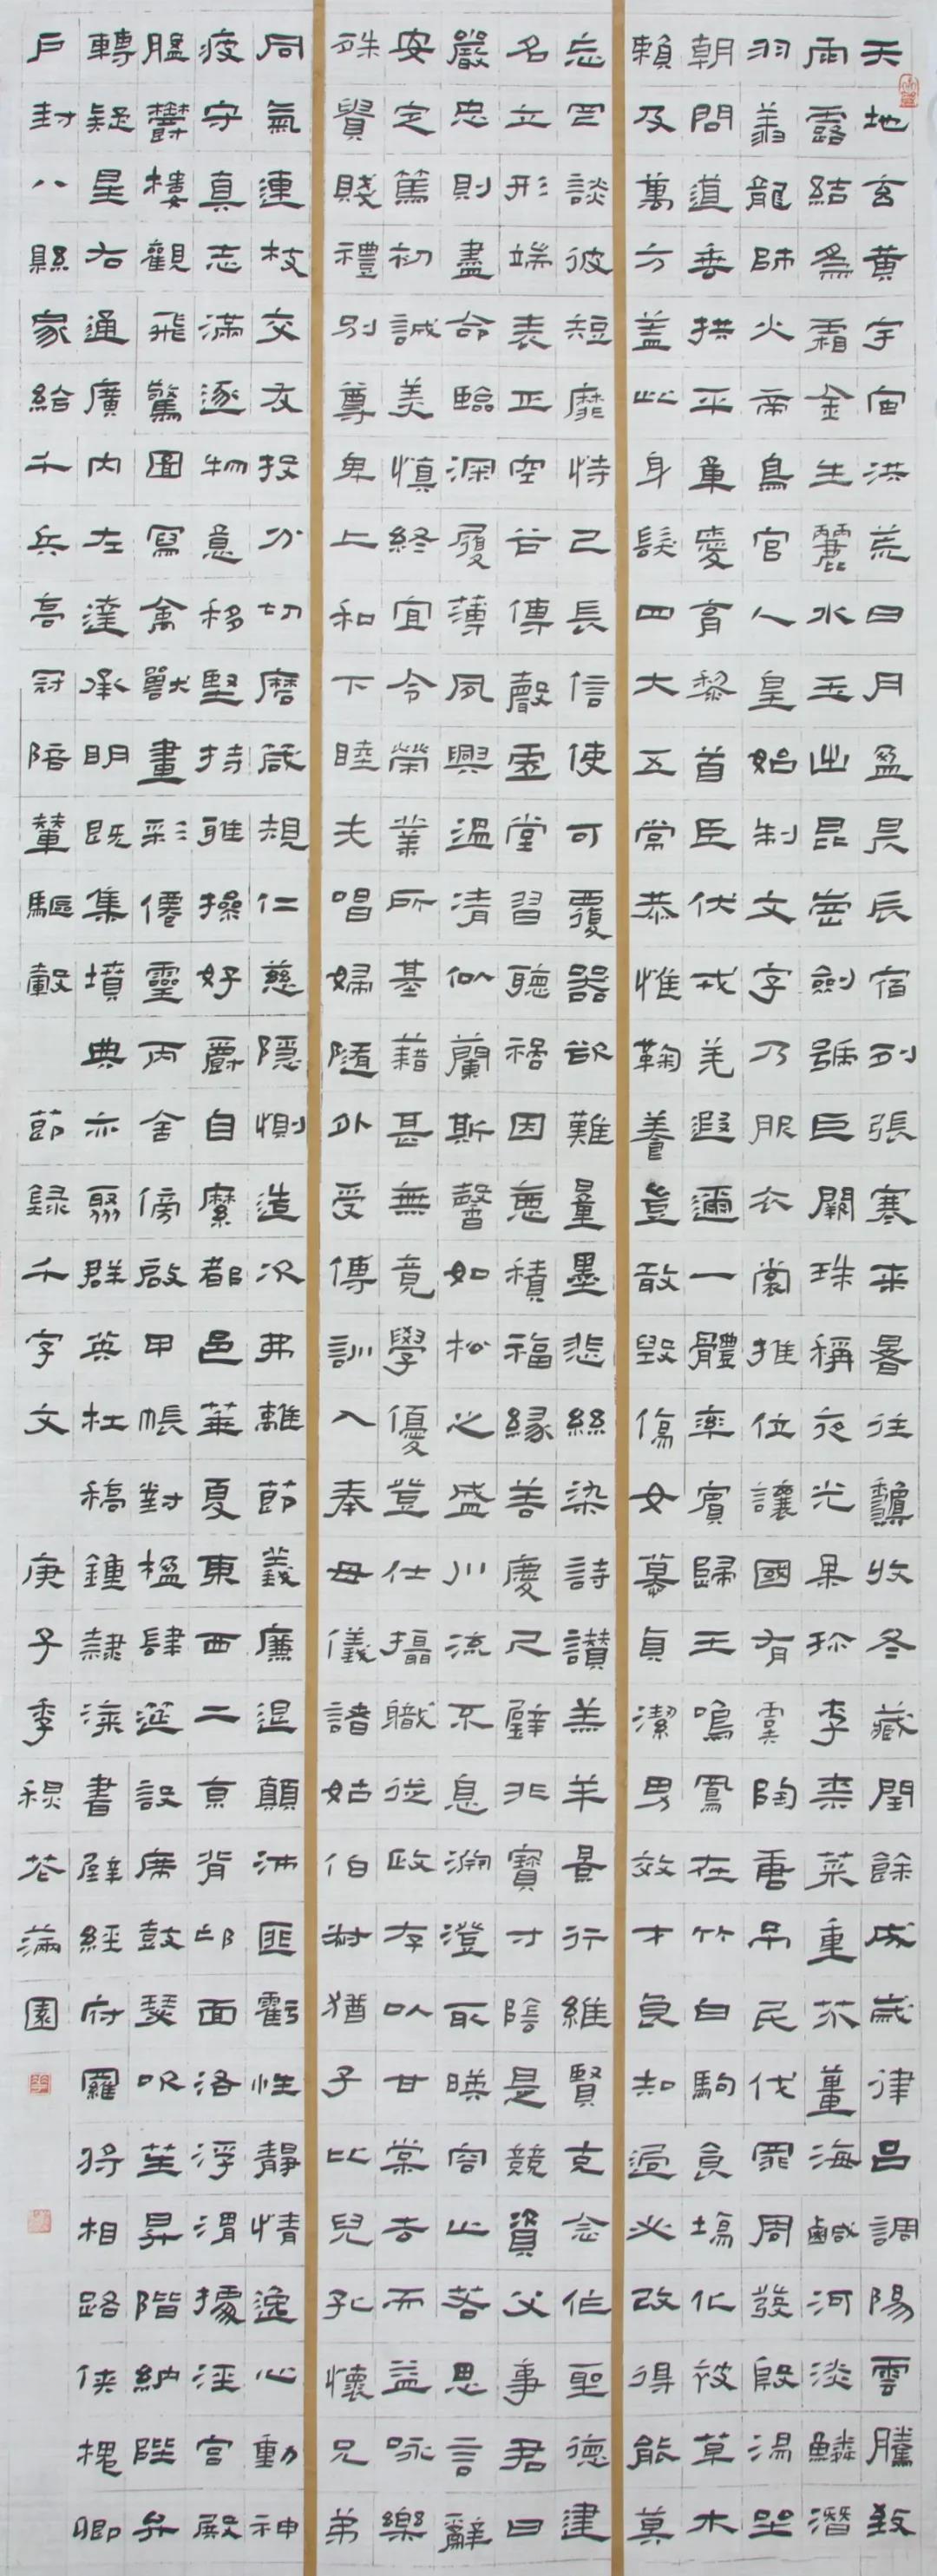 天地玄黃宇宙洪荒日月盈昃辰宿列張寒來暑往龝收冬藏閏餘成歲律呂調陽雲騰致
雨露結為霜金生麗水玉出昆崗劍號巨闕珠稱夜光果珍李柰菜重芥薑海鹹河淡鱗潛
羽翔龍師火帝鳥官人皇始制文字乃服衣裳推位讓國有虞陶唐弔民伐罪周發殷湯坐
朝問道垂拱平章愛育黎首臣伏戎羌遐邇一體率賓歸王鳴鳳在竹白駒食場化被草木
賴及萬方蓋此身髮四大五常恭惟鞠養豈敢毀傷女慕貞潔男效才良知過必改得能莫
忘罔談彼短靡恃己長信使可覆器欲難量墨悲絲染詩讚羔羊景行維賢克念作聖德建
名立形端表正空谷傳聲虛堂習聽禍因惡積福緣善慶尺璧非寶寸陰是競資父事君曰
嚴忠則盡命臨深履薄夙興溫清似蘭斯馨如松之盛川流不息淵澄取暎容止若思言辭
安定篤初誠美慎終宜令榮業所基藉甚無竟學優登仕攝職從政存以甘棠去而益詠樂
殊貴賤禮別尊卑上和下睦夫唱婦隨外受傅訓入奉母儀諸姑伯叔猶子比兒孔懷兄弟
同氣連枝交友投分切磨箴規仁慈隱惻造次弗離節義廉退顛沛匪虧性靜情逸心動神
疲守真志滿逐物意移堅持雅操好爵自縻都邑華夏東西二京背邙面洛浮渭據涇宮殿
盤鬱樓觀飛驚圖寫禽獸畫彩僊靈丙舍傍啟甲帳對楹肆筵設席鼓瑟吹笙昇階納陛弁
轉疑星右通廣內左達承明既集墳典亦聚群英杜稿鍾隸漆書壁經府羅將相路俠槐卿
戶封八縣家給千兵高冠陪輦驅轂 節錄千字文 庚子季穐花滿園